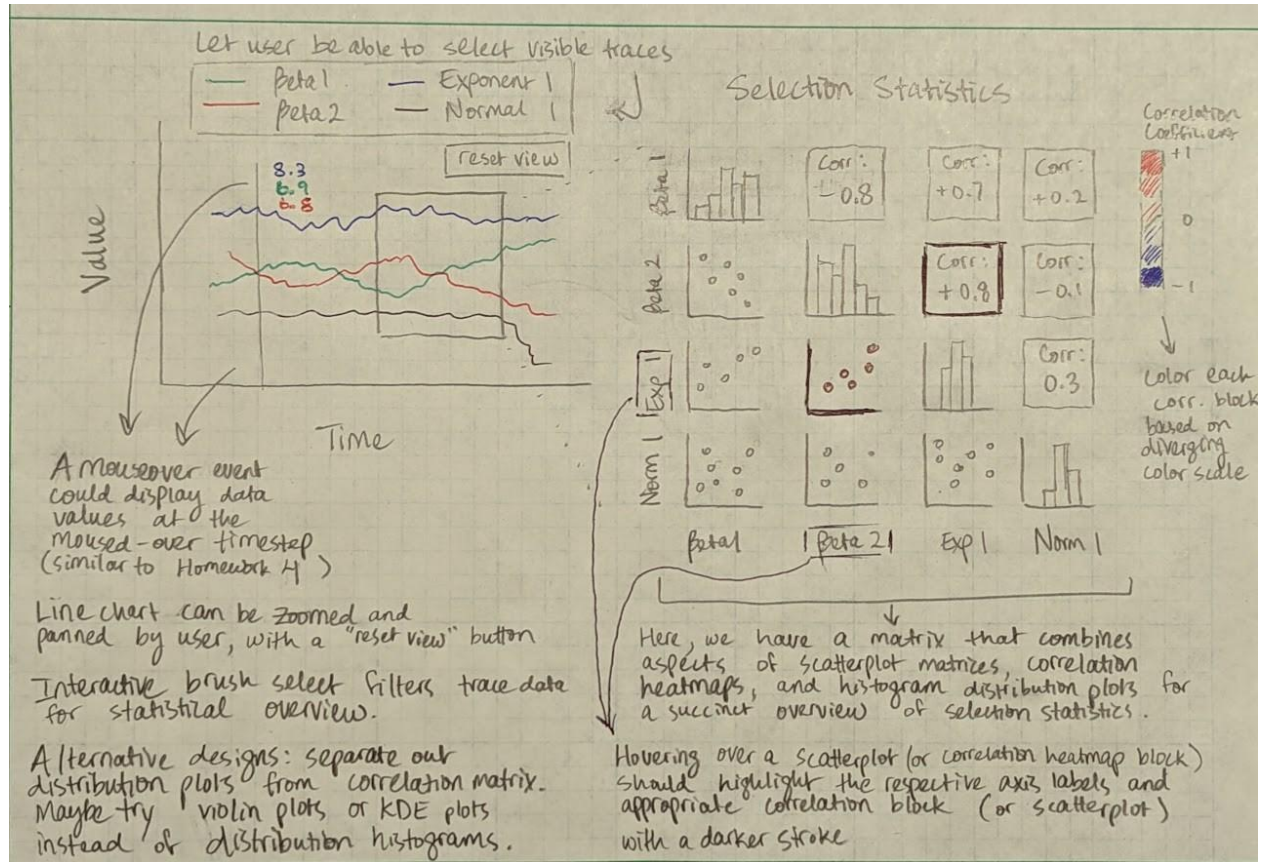 Let user be able to select visible traces
Beta 1
Exponent 1
Beta 2
Normal 1
reset view
8.3
6.9
6.8
Value
Time
A mouseover event
could display data
values at the
moused-over timestep
(similar to Homework 4)
Line chart can be zoomed and
panned by user, with a "reset view" button
Interactive brush select filters trace data
for statistical overview.
Alternative designs: separate out
distribution plots from correlation matrix.
Maybe try violin plots or KDE plots
instead of distribution histograms.
Selection Statistics
Beta 1
Corr:
-0.8
Corr:
+0.7
Corr:
+0.2
Beta 2
Corr:
+0.8
Corr:
-0.1
Exp 1
Corr:
0.3
Norm 1
Beta 1
Beta 2
Exp 1
Norm 1
Correlation
+1
0
-1
Color each
corr. block
based on
diverging
color scale
Here, we have a matrix that combines
aspects of scatterplot matrices, correlation
heatmaps, and histogram distribution plots for
a succinct overview of selection statistics.
Hovering over a scatterplot (or correlation heatmap block)
should highlight the respective axis labels and
appropriate correlation block (or scatterplot)
with a darker stroke